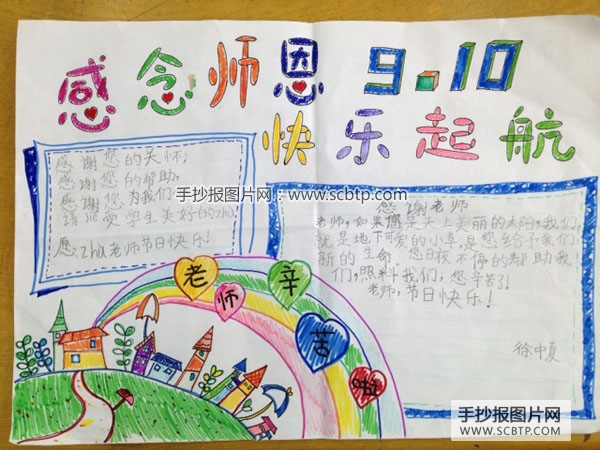 感念师恩 9.10
快乐起航
感谢您的关怀,
感谢您的帮助,
感谢您为我们
请接受学生美好的祝
愿:Zhu老师节日快乐!
手抄报图片网:www.scbtp.com
感谢老师
老师,如果您是天上美丽的太阳,我们
就是地下可爱的小草,是您给予我们
新的生命 您日夜不停的帮助我
们,照料我们,您辛苦了!
老师,节日快乐!
徐中夏
老师辛苦
手抄报图片网
WWW.SCBTP.COM